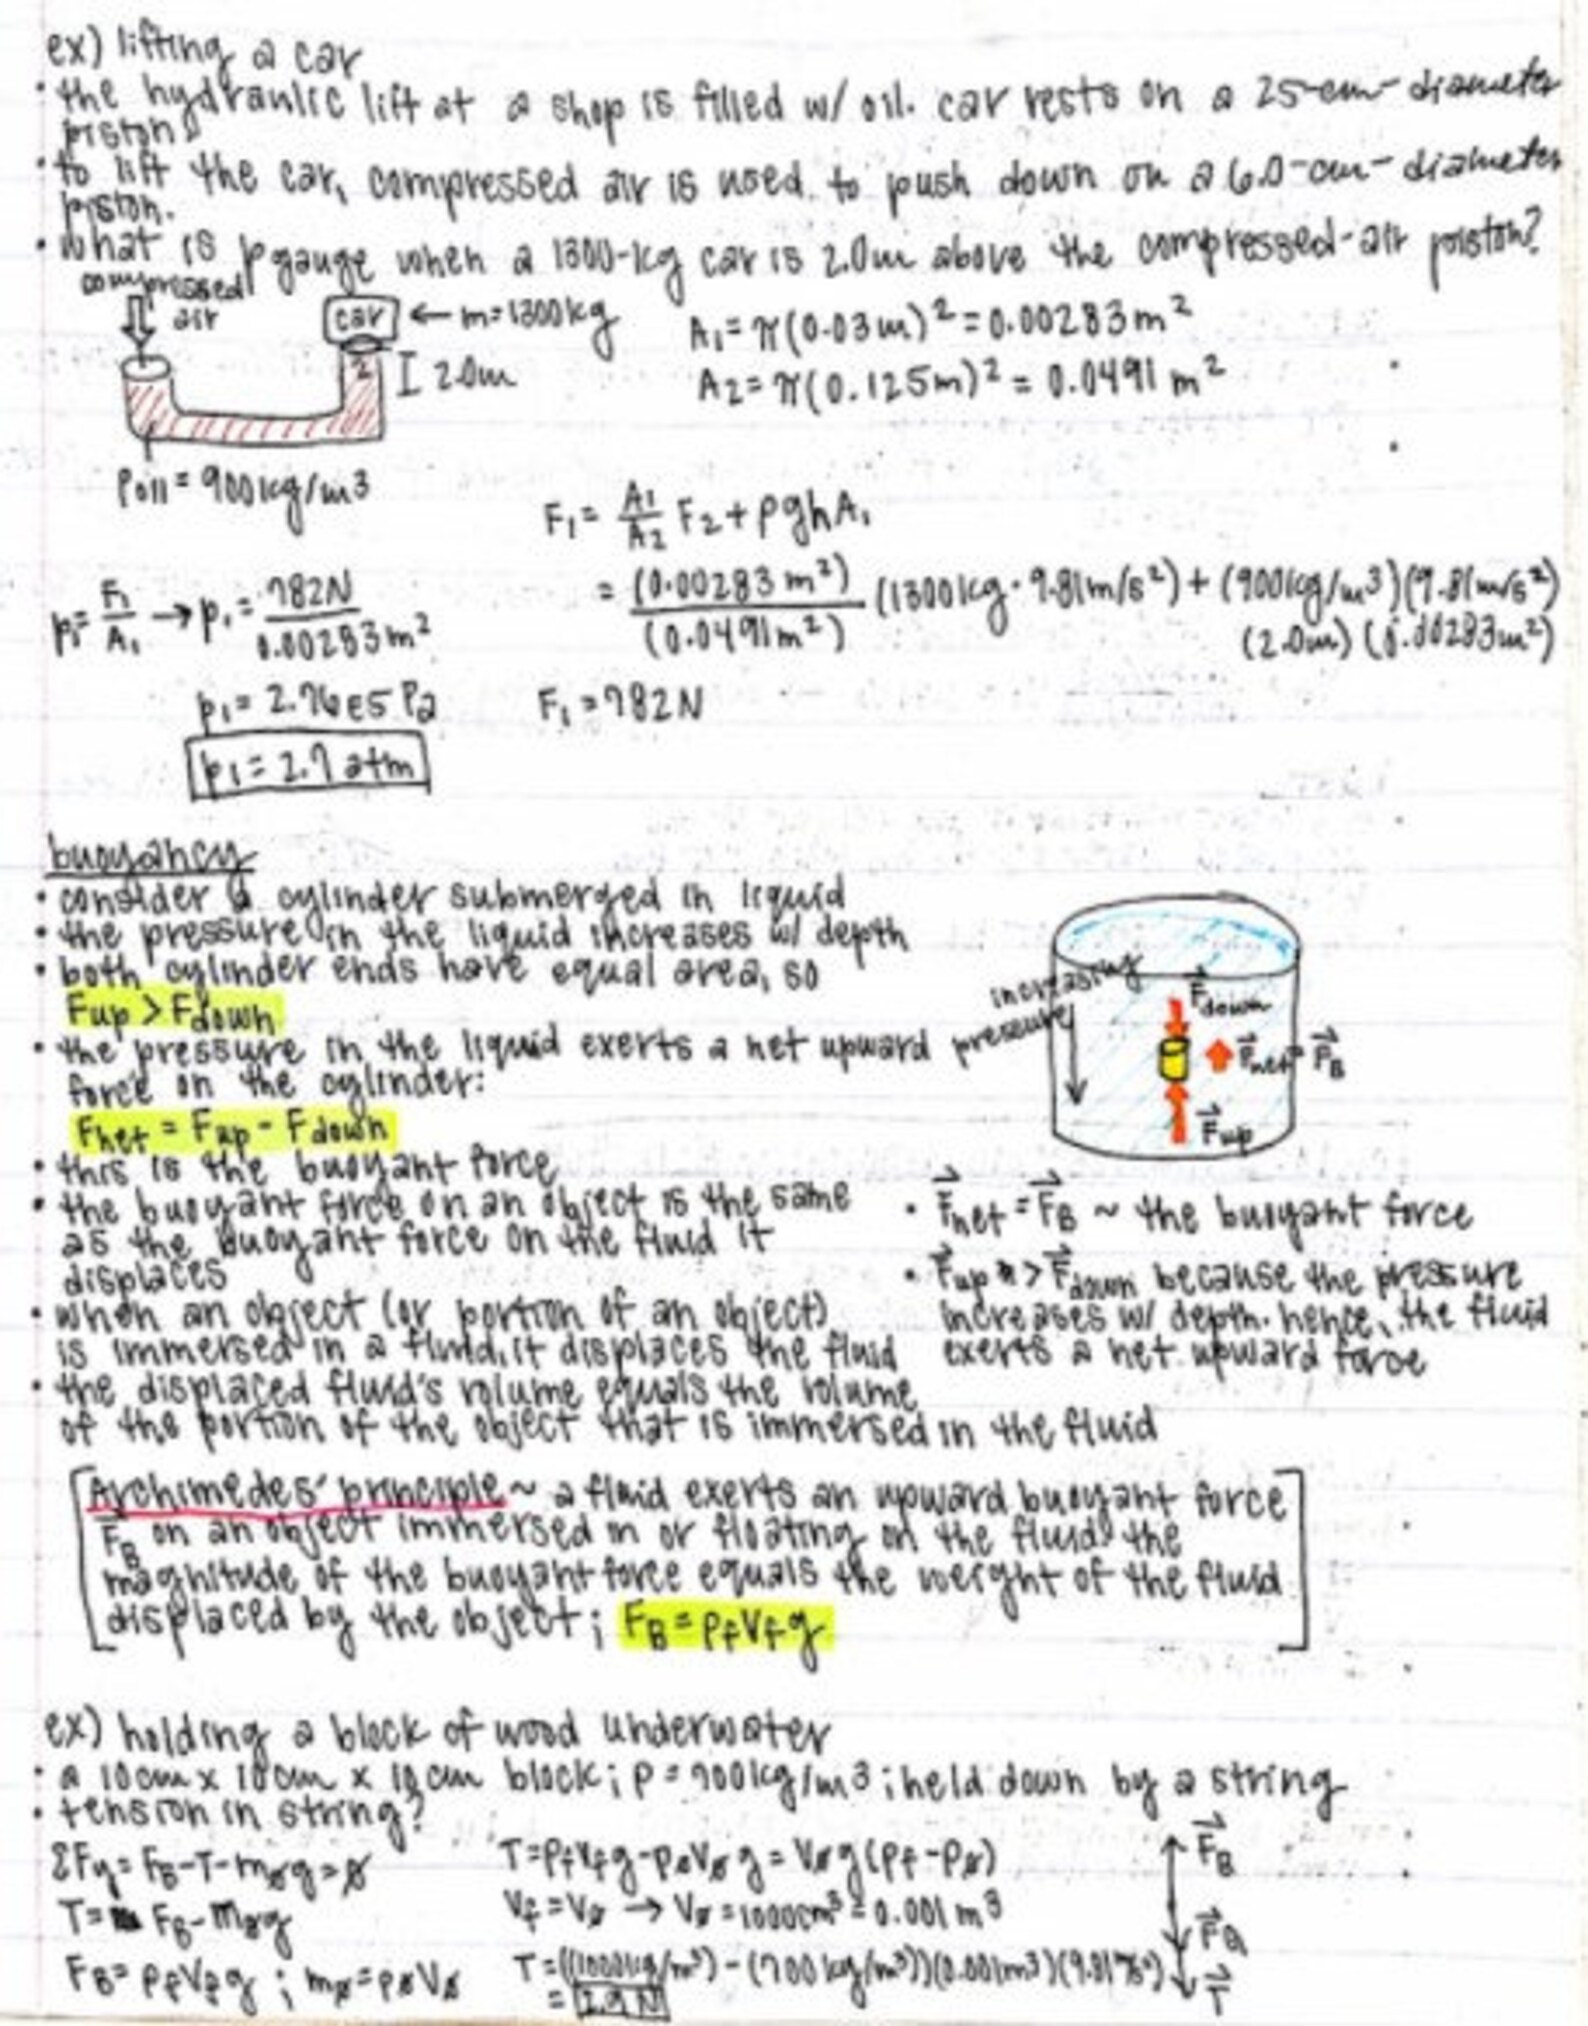 ex) lifting a car
• the hydraulic lift at a shop is filled w/ oil. car rests on a 25-cm-diameter
piston.
• to lift the car, compressed air is used to push down on a 6.0-cm-diameter
piston.
• what is pgauge when a 1300-kg car is 2.0m above the compressed-air piston?
compressed
air
car ← m=1300kg
2
I 2.0m
A₁=π(0.03m)²=0.00283m²
A₂=π(0.125m)²=0.0491 m²
ρoil=900kg/m3
F₁= A₁/A₂ F₂+ρghA₁
= (0.00283m²)/(0.0491m²) (1300kg·9.81m/s²)+(900kg/m3)(9.81m/s²)
(2.0m)(0.00283m²)
p₁= F₁/A₁ → p₁= 782N/0.00283m²
p₁=2.76e5 Pa
F₁=782N
p₁=2.7atm
buoyancy
• consider a cylinder submerged in liquid
• the pressure in the liquid increases w/ depth
• both cylinder ends have equal area, so
Fup > Fdown
• the pressure in the liquid exerts a net upward
force on the cylinder:
Fnet = Fup - Fdown
• this is the buoyant force
• the buoyant force on an object is the same
as the buoyant force on the fluid it
displaces
• when an object (or portion of an object)
is immersed in a fluid, it displaces the fluid
• the displaced fluid's volume equals the volume
of the portion of the object that is immersed in the fluid
increasing
pressure
F⃗down
F⃗net=F⃗B
F⃗up
• F⃗net=F⃗B ~ the buoyant force
• F⃗up > F⃗down because the pressure
increases w/ depth. hence, the fluid
exerts a net upward force
Archimedes' principle ~ a fluid exerts an upward buoyant force
F⃗B on an object immersed in or floating on the fluid. the
magnitude of the buoyant force equals the weight of the fluid
displaced by the object; FB=ρfVfg
ex) holding a block of wood underwater
• a 10cm x 10cm x 10cm block; ρ=700kg/m3; held down by a string
• tension in string?
ΣFy=FB-T-mog=0
T= FB-mog
FB=ρfVfg; mo=ρoVo
T=ρfVfg-ρoVog=Vog(ρf-ρo)
Vf=Vo → Vo=1000cm³=0.001m³
T=((1000kg/m³)-(700kg/m³))(0.001m3)(9.81m/s²)
= 2.9N
F⃗B
F⃗G
T⃗